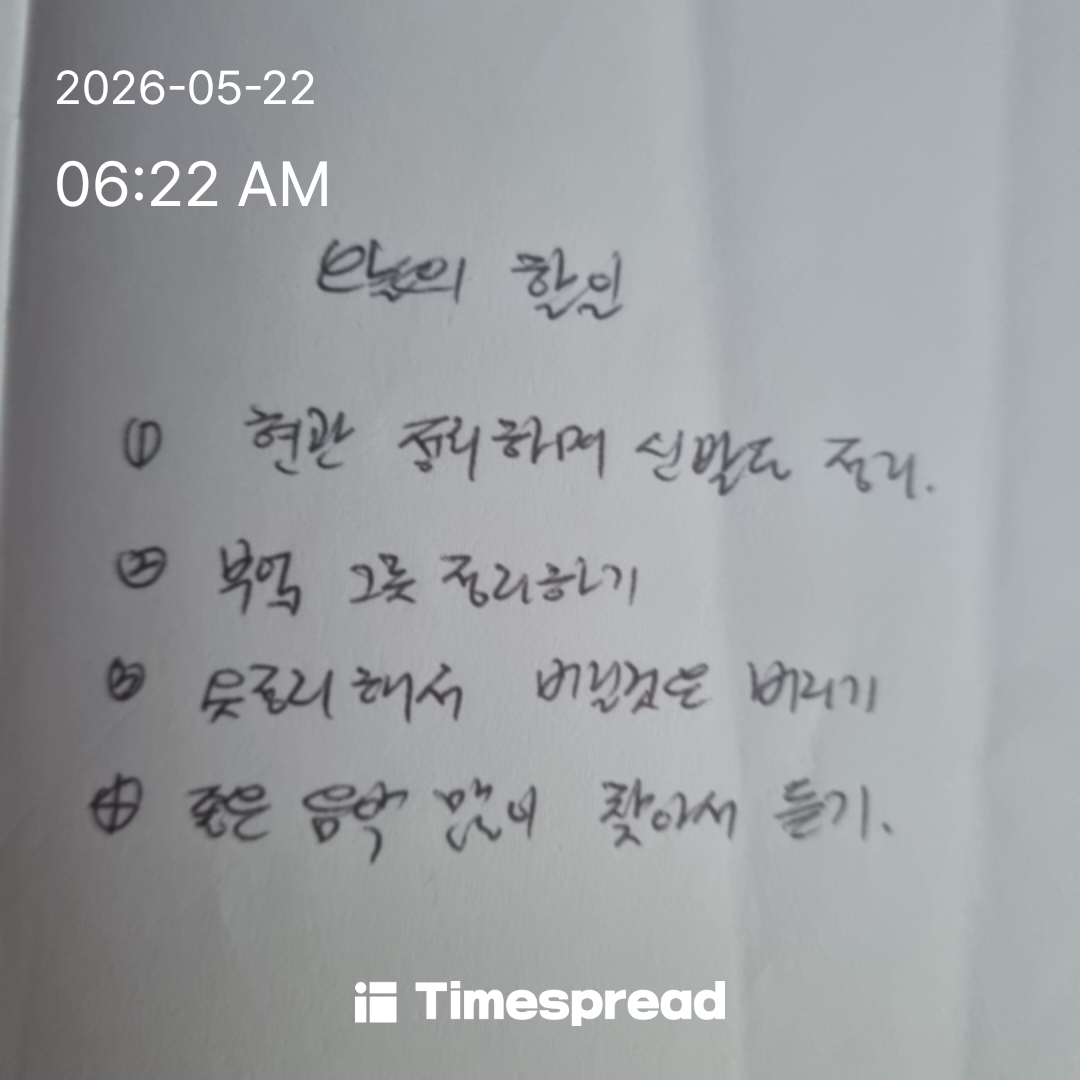 2026-05-22
06:22 AM
오늘의 할일
① 현관 정리하며 신발도 정리.
② 부엌 그릇 정리하기
③ 옷정리해서 버릴것은 버리기
④ 좋은 음악 많이 찾아서 듣기.
Timespread